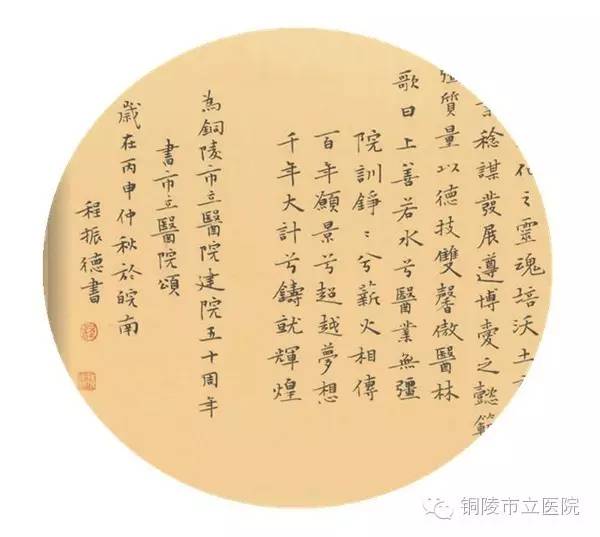 化之靈魂培沃土
稔謀發展遵博愛之懿範
質量以德技雙馨傲醫林
歌曰上善若水兮醫業無疆
院訓錚〻兮薪火相傳
百年願景兮超越夢想
千年大計兮鑄就輝煌
為銅陵市立醫院建院五十周年
書市立醫院頌
歲在丙申仲秋於皖南
程振德書
铜陵市立医院